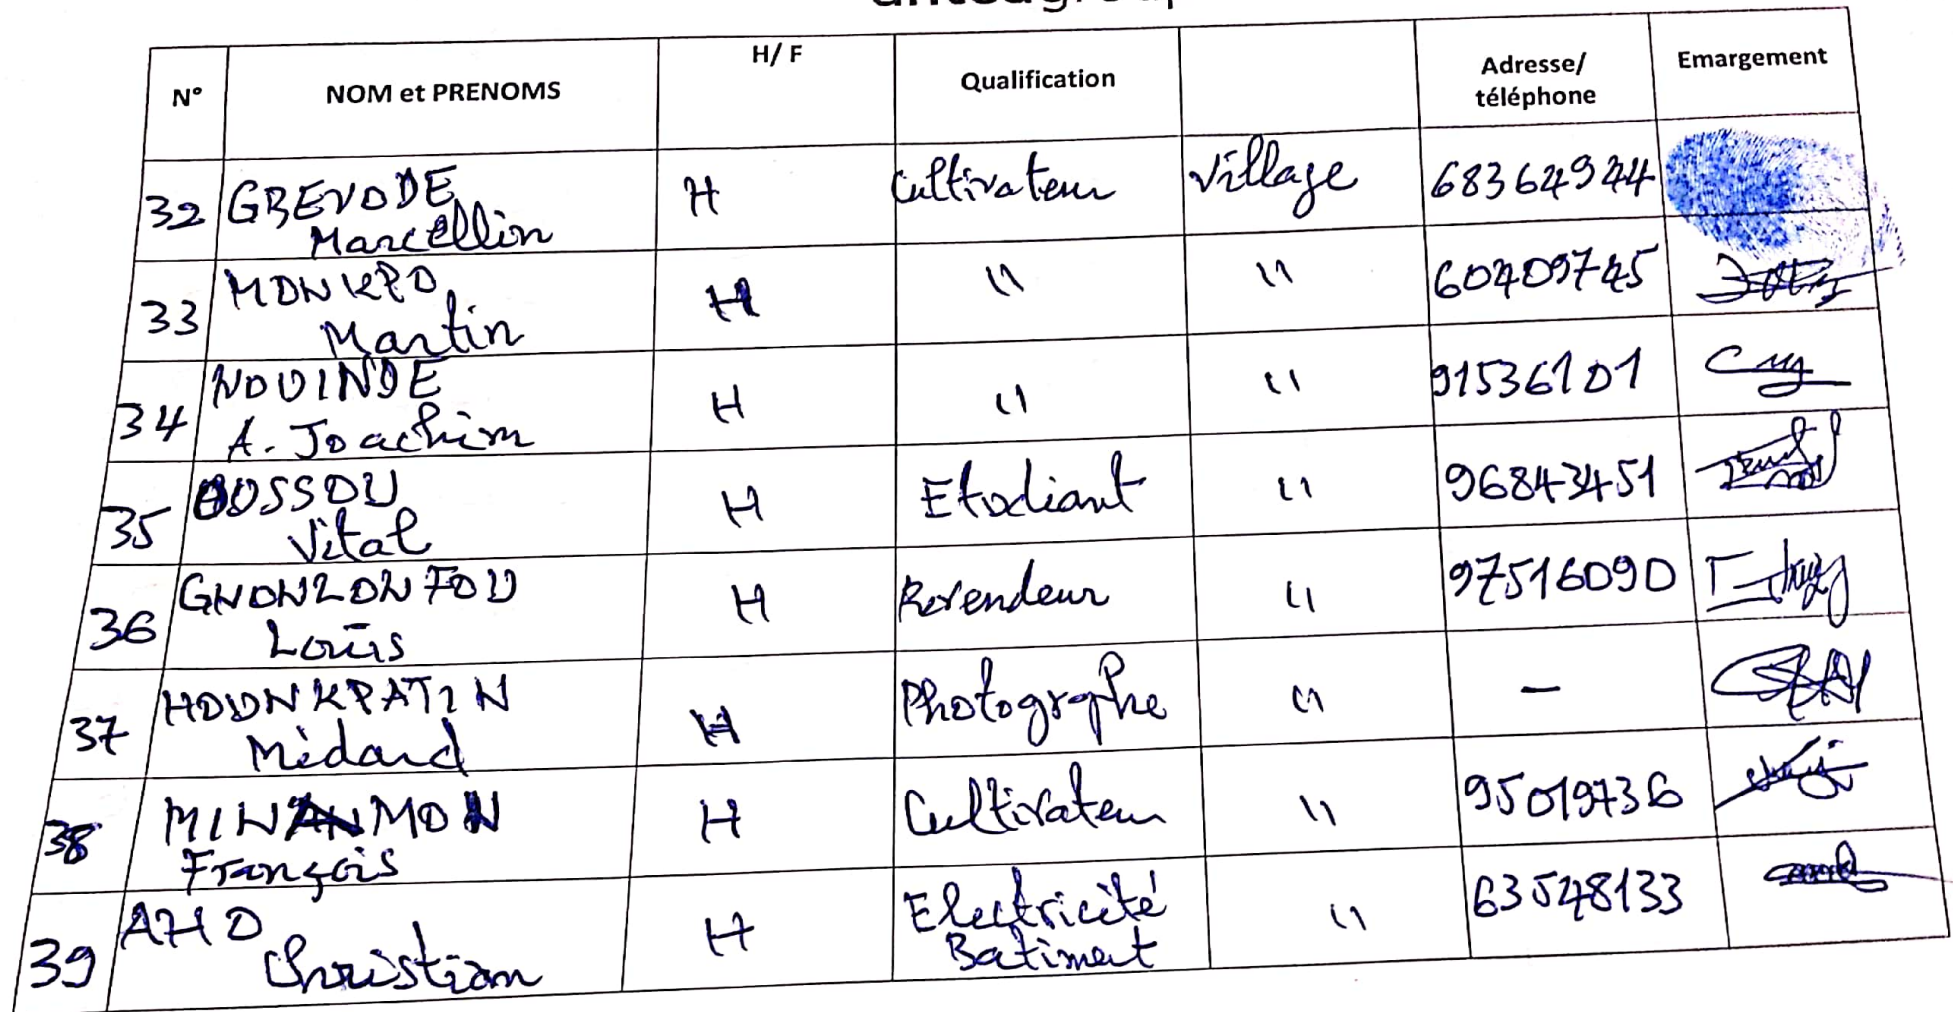 N° NOM et PRENOMS H/ F Qualification Adresse/ téléphone Emargement
32 GBEVODE Marcellin H Cultivateur Village 68364944
33 MONKPO Martin H " " 60409745
34 NOUINDE A. Joachim H " " 91536101
35 BOSSOU Vital H Etudiant " 96843451
36 GNONLONFOU Louis H Revendeur " 97516090
37 HOUNKPATIN Médard H Photographe " –
38 MINANMON François H Cultivateur " 95019736
39 AHO Christian H Electricité Batiment " 63548133